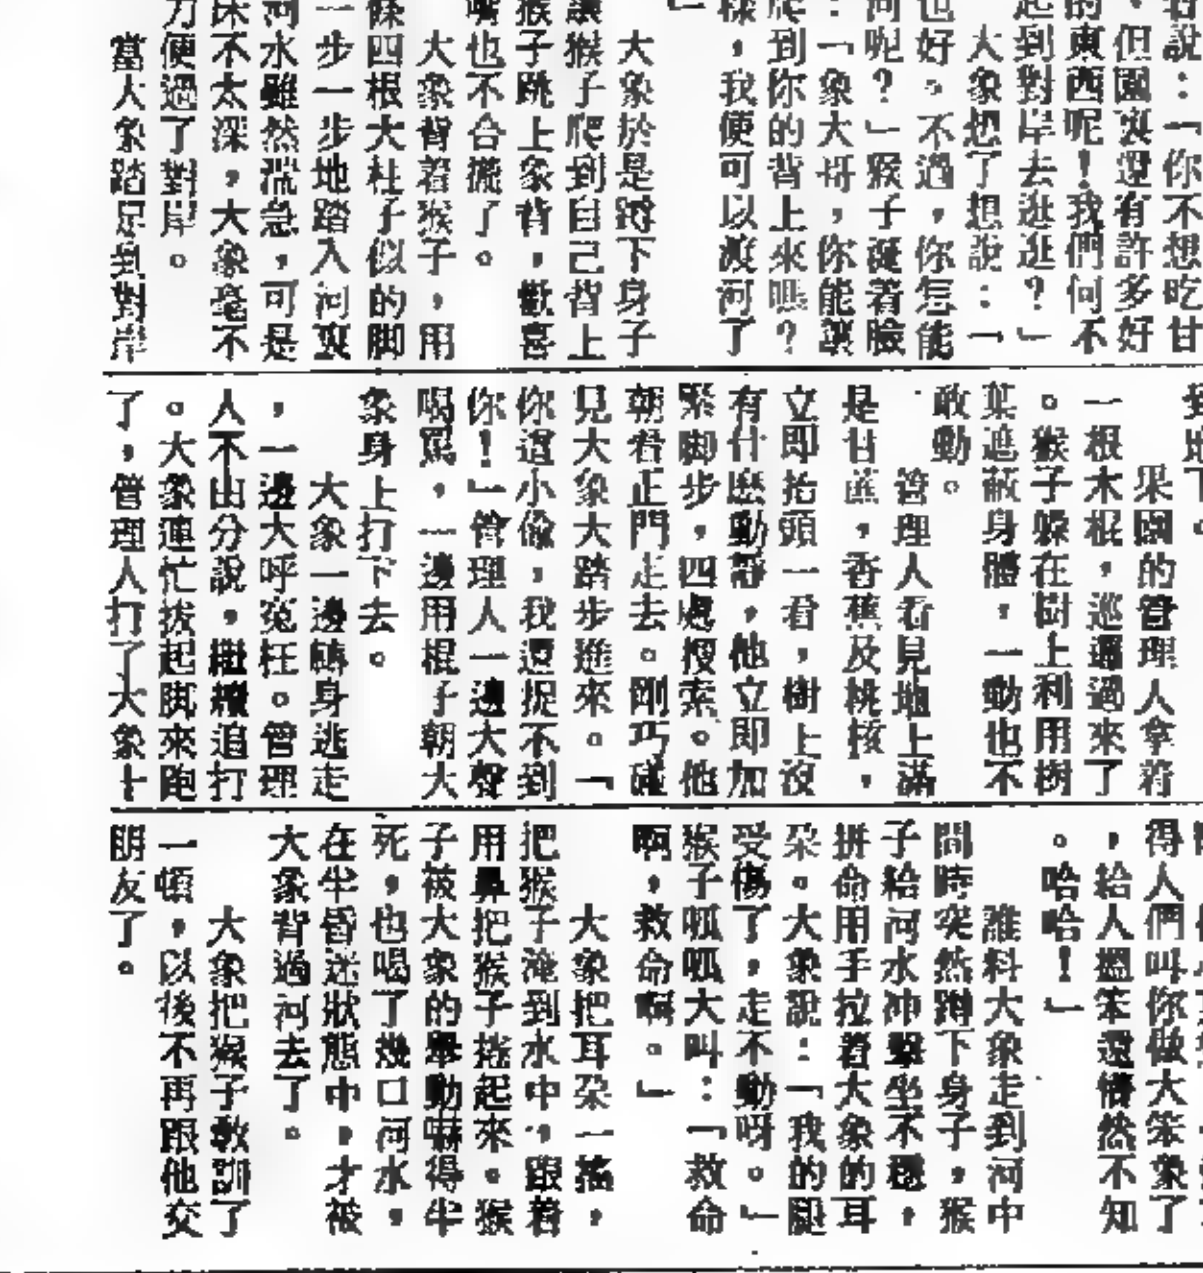 說：「你不想吃甘
，但園裏還有許多好
的東西呢！我們何不
起到對岸去逛逛？」
大象想了想說：「
也好。不過，你怎能
河呢？」猴子涎着臉
：「象大哥，你能讓
爬到你的背上來嗎？
樣，我便可以渡河了
」
大象於是蹲下身子
讓猴子爬到自己背上
猴子跳上象背，歡喜
嘴也不合攏了。
大象背着猴子，用
條四根大柱子似的脚
一步一步地踏入河裏
河水雖然湍急，可是
床不太深，大象毫不
力便過了對岸。
當大象踏足到對岸
果園的管理人拿着
一根木棍，巡邏過來了
。猴子躲在樹上利用樹
葉遮蔽身體，一動也不
敢動。
管理人看見地上滿
是甘蔗，香蕉及桃核，
立即抬頭一看，樹上沒
有什麽動靜，他立即加
緊脚步，四處搜索。他
朝着正門走去。剛巧碰
見大象大踏步進來。「
你這小偷，我還捉不到
你！」管理人一邊大聲
喝罵，一邊用棍子朝大
象身上打下去。
大象一邊轉身逃走
，一邊大呼冤枉。管理
人不由分說，繼續追打
。大象連忙拔起脚來跑
了，管理人打了大象十
得人們叫你做大笨象了
，給人搵笨還懵然不知
。哈哈！」
誰料大象走到河中
間時突然蹲下身子，猴
子給河水冲擊坐不穩，
拼命用手拉着大象的耳
朵。大象說：「我的腿
受傷了，走不動呀。」
猴子呱呱大叫：「救命
啊，救命啊。」
大象把耳朵一搖，
把猴子淹到水中，跟着
用鼻把猴子捲起來。猴
子被大象的舉動嚇得半
死，也喝了幾口河水，
在半昏迷狀態中，才被
大象背過河去了。
大象把猴子教訓了
一頓，以後不再跟他交
朋友了。